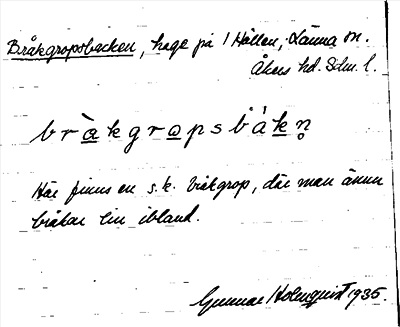 Bråkgropsbacken, hage på Hållen, Länna sn.
Åkers hd. Sdm. l.
bràkgrapsbákn̥
Här finns en s.k. bråkgrop, där man ännu
bråkar lin ibland.
Gunnar Holmquist 1935.